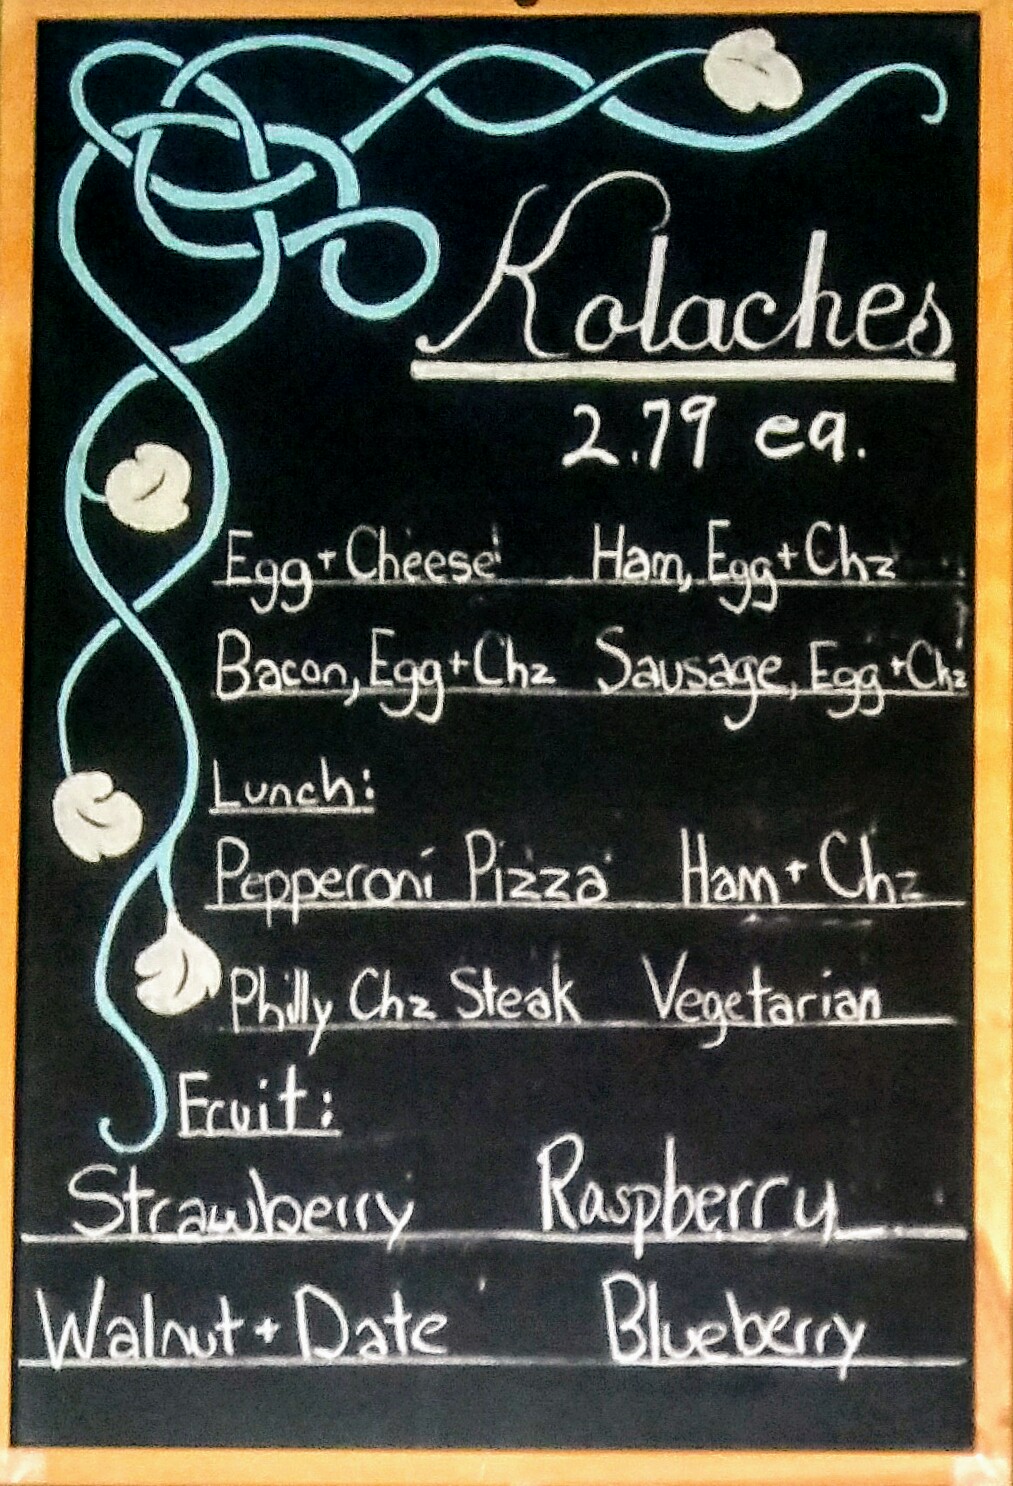 Kolaches
2.79 ea.
Egg + Cheese Ham, Egg + Chz
Bacon, Egg + Chz Sausage, Egg + Chz
Lunch:
Pepperoni Pizza Ham + Chz
Philly Chz Steak Vegetarian
Fruit:
Strawberry Raspberry
Walnut + Date Blueberry